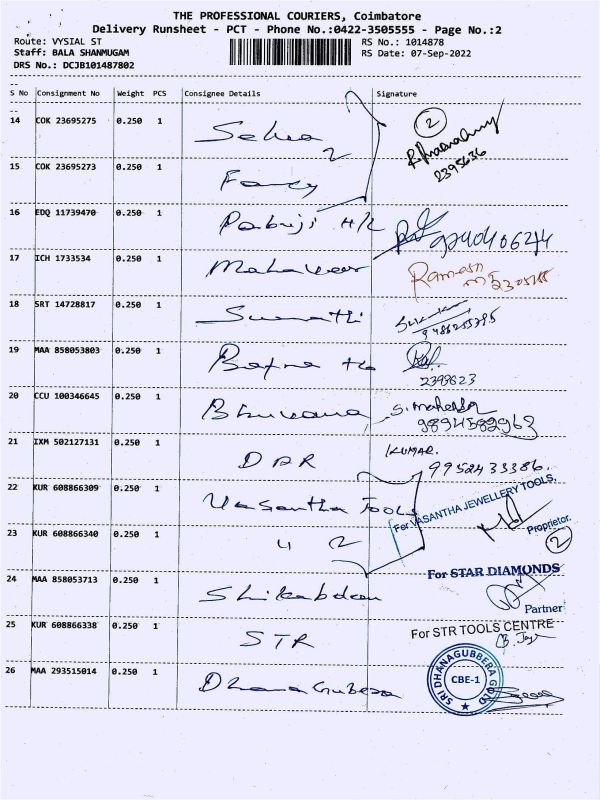 THE PROFESSIONAL COURIERS, Coimbatore
Delivery Runsheet - PCT - Phone No.:0422-3505555 - Page No.:2
Route: VYSIAL ST
RS No.: 1014878
Staff: BALA SHANMUGAM
RS Date: 07-Sep-2022
DRS No.: DCJB101487802
S No Consignment No Weight PCS Consignee Details Signature
14 COK 23695275 0.250 1 2
2 2395636
15 COK 23695273 0.250 1 Fancy
16 EDQ 11739470 0.250 1 Pabuji H/L
17 ICH 1733534 0.250 1 Mahaveer Ramesh
18 SRT 14728817 0.250 1 Sumathi
19 MAA 858053803 0.250 1 Bafna
2399623
20 CCU 100346645 0.250 1 Bhuvana S. Mahendra
9894582963
21 IXM 502127131 0.250 1 DPR KUMAR.
9952433386.
22 KUR 608866309 0.250 1 Vasantha Tools
For VASANTHA JEWELLERY TOOLS,
Proprietor.
23 KUR 608866340 0.250 1 2
24 MAA 858053713 0.250 1 For STAR DIAMONDS
Partner
25 KUR 608866338 0.250 1 STR For STR TOOLS CENTRE
26 MAA 293515014 0.250 1 Dhana Gubera
SRI DHANAGUBBERA GOLD
CBE-1